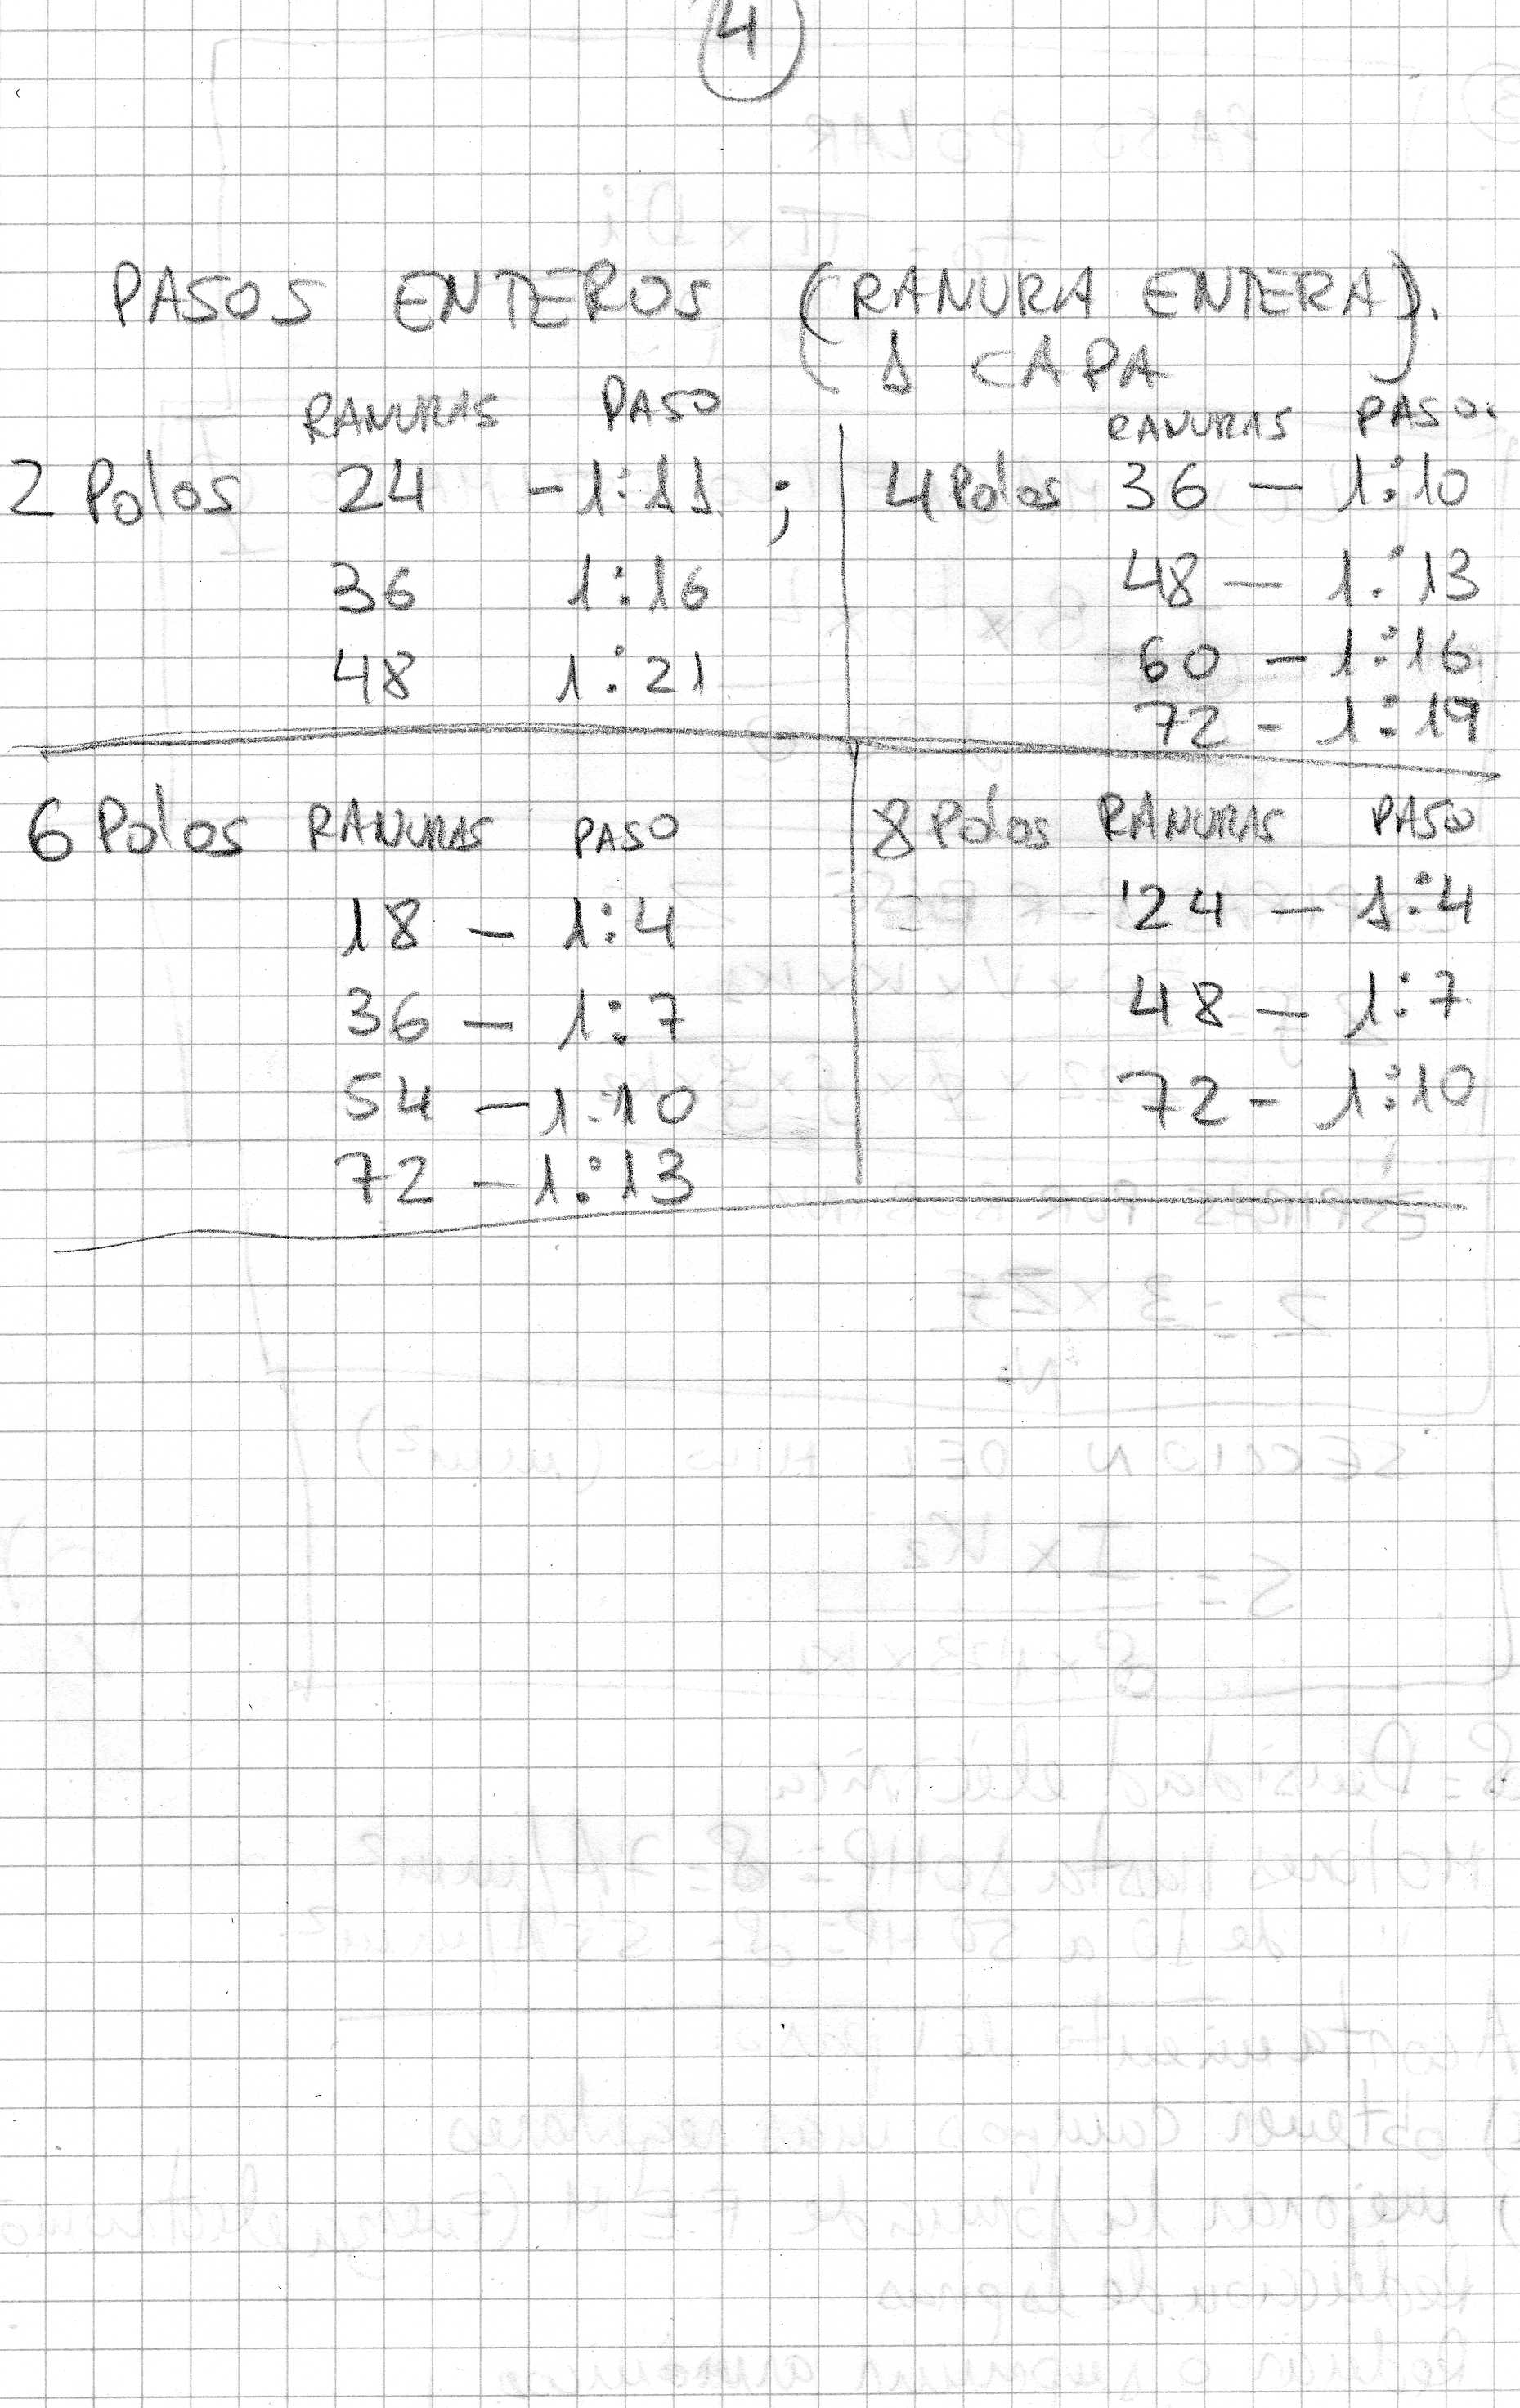 4
PASOS ENTEROS (RANURA ENTERA).
1 CAPA
RANURAS PASO
2 Polos 24 - 1:11 ;
36 1:16
48 1:21
RANURAS PASO.
4 Polos 36 - 1:10
48 - 1:13
60 - 1:16
72 - 1:19
6 Polos RANURAS PASO
18 - 1:4
36 - 1:7
54 - 1:10
72 - 1:13
8 Polos RANURAS PASO
24 - 1:4
48 - 1:7
72 - 1:10